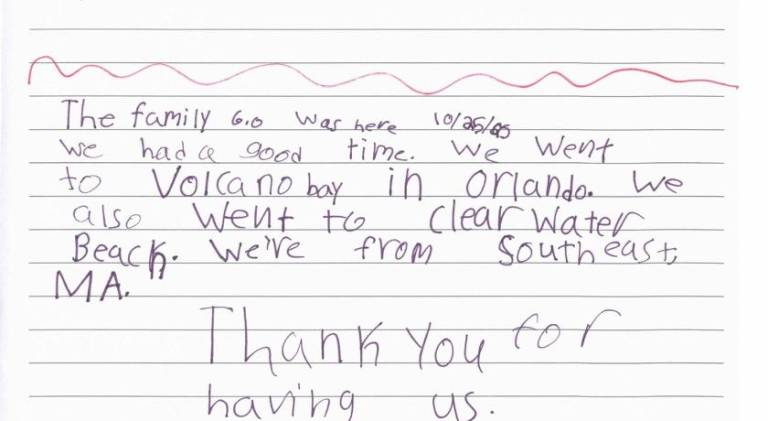 The family 6.0 was here 10/25/25
we had a good time. We went
to Volcano bay in Orlando. We
also went to clear water
Beach. We're from Southeast,
MA.
Thank you for
having us.